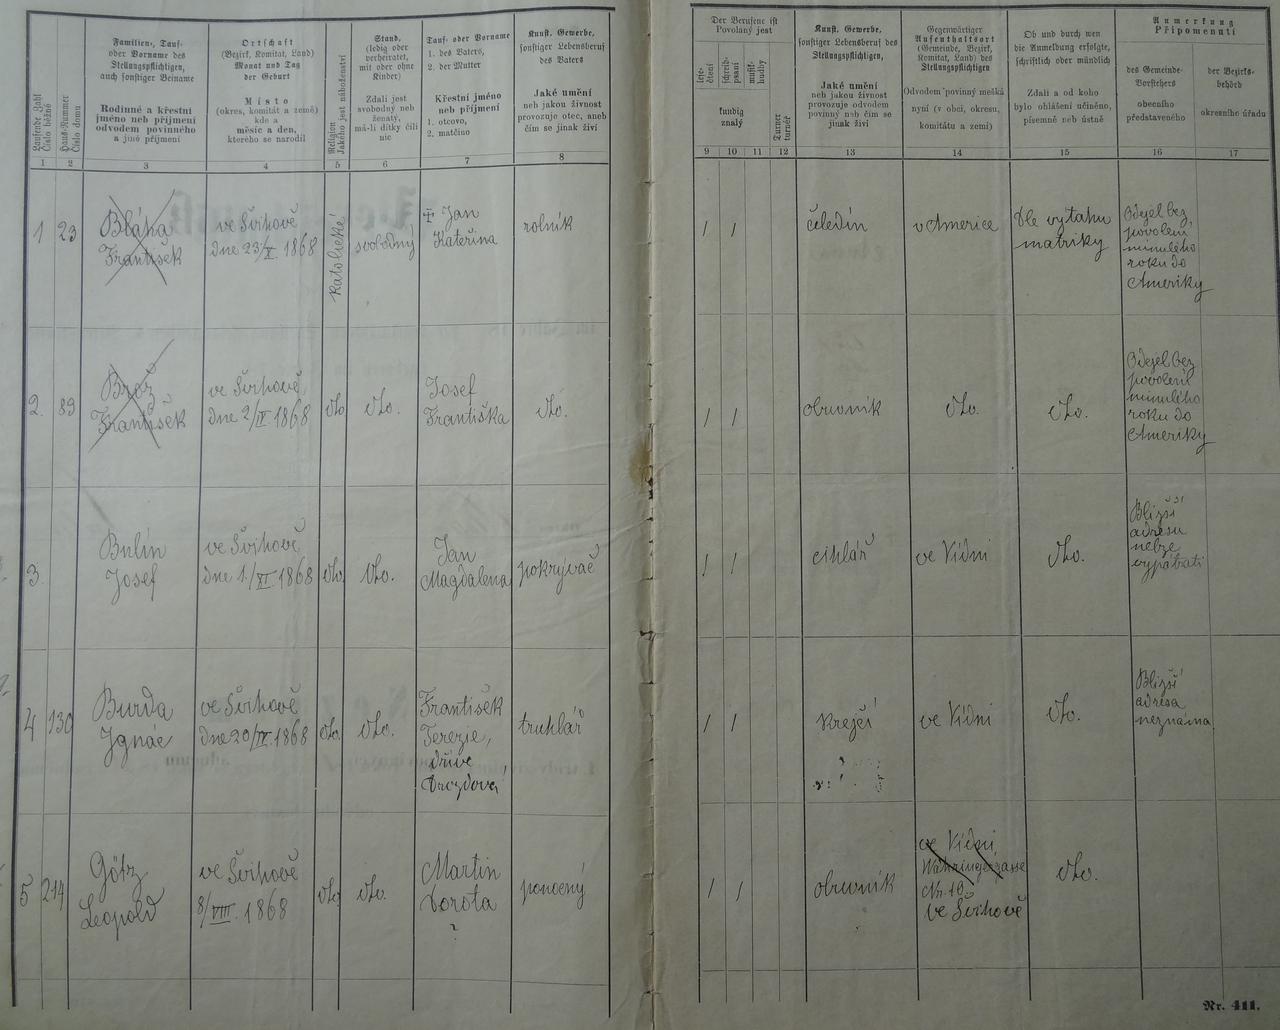 Laufende Zahl
Číslo běžné
Haus-Nummer
Číslo domu
Familien-, Tauf-
oder Vorname des
Stellungspflichtigen,
auch sonstiger Beiname
Rodinné a křestní
jméno neb příjmení
odvodem povinného
a jiné příjmení
Ortschaft
(Bezirk, Komitat, Land)
Monat und Tag
der Geburt
Místo
(okres, komitát a země)
kde a
měsíc a den,
kterého se narodil
Religion
Jakého jest náboženství
Stand,
(ledig oder
verheiratet,
mit oder ohne
Kinder)
Zdali jest
svobodný neb
ženatý,
má-li dítky čili
nic
Tauf- oder Vorname
1. des Vaters,
2. der Mutter
Křestní jméno
neb příjmení
1. otcovo,
2. matčino
Kunst, Gewerbe,
sonstiger Lebensberuf
des Vaters
Jaké umění
neb jakou živnost
provozuje otec, aneb
čím se jinak živí
1 2 3 4 5 6 7 8
Der Berufene ist
Povolaný jest
lese-
čtení
schreib-
psaní
musik-
hudby
Turner
turnéř
kundig
znalý
Kunst, Gewerbe,
sonstiger Lebensberuf des
Stellungspflichtigen,
Jaké umění
neb jakou živnost
provozuje odvodem
povinný neb čím se
jinak živí
Gegenwärtiger
Aufenthaltsort
(Gemeinde, Bezirk,
Komitat, Land) des
Stellungspflichtigen
Odvodem povinný mešká
nyní (v obci, okresu,
komitátu a zemi)
Ob und durch wen
die Anmeldung erfolgte,
schriftlich oder mündlich
Zdali a od koho
bylo ohlášení učiněno,
písemně neb ústně
Anmerkung
Připomenutí
des Gemeinde-
Vorstehers
obecního
představeného
der Bezirks-
behörd
okresního úřadu
9 10 11 12 13 14 15 16 17
1 23
Bláha
František
ve Švihově
dne 23/X. 1868
katolické
svobodný
† Jan
Kateřina
rolník
/ /
čeledín
v Americe
Dle výtahu
matriky
Odejel bez
povolení
minulého
roku do
Ameriky
2. 89
Brož
František
ve Švihově
dne 2/IV 1868
dto
dto.
Josef
Františka
dto.
/ /
obuvník
dto.
dto.
Odejel bez
povolení
minulého
roku do
Ameriky
3.
Bulín
Josef
ve Švihově
dne 1./XI 1868
dto.
dto.
Jan
Magdalena
pokrývač
/ /
cihlář
ve Vídni
dto.
Bližší
adresu
nelze
vypátrati
4 130
Burda
Ignác
ve Švihově
dne 20/IV. 1868
dto.
dto.
František
Terezie,
dříve
Drozdová
truhlář
/ /
krejčí
ve Vídni
dto.
Bližší
adresa
neznáma
5 214
Götz
Leopold
ve Švihově
8/VIII. 1868
dto.
dto.
Martin
Dorota
?
ponocný
/ /
obuvník
ve Vídni,
Währingergasse
Nr. 10.
ve Švihově
dto.
Nr. 411.